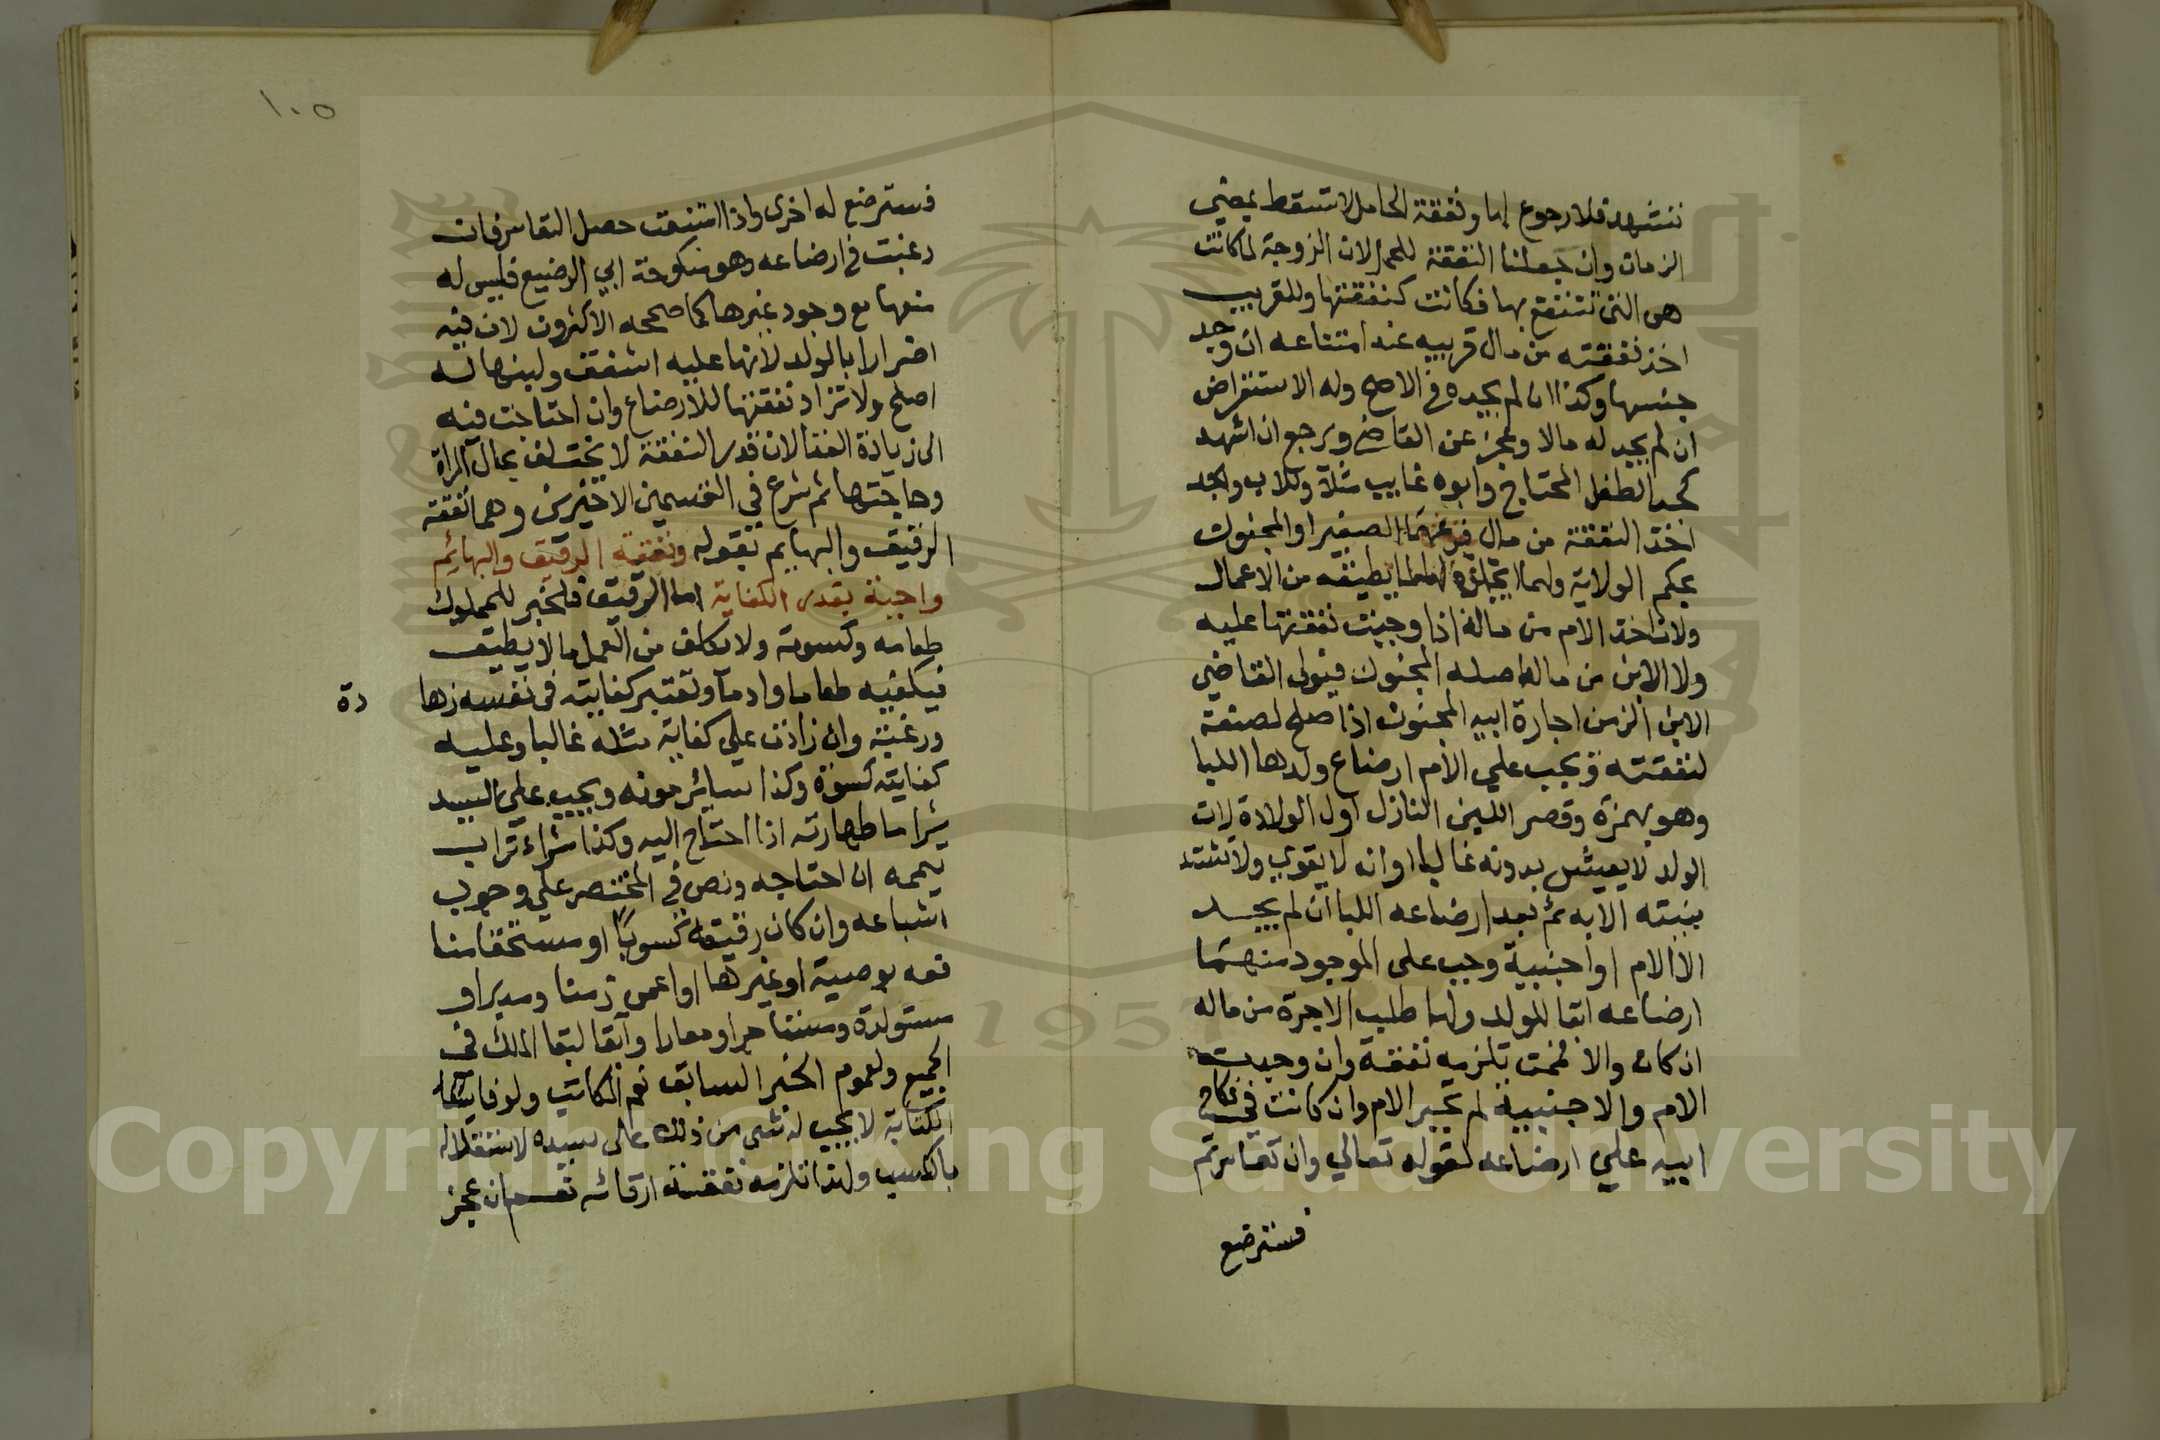 تشهد فلا رجوع لها ونفقة الحامل لا تسقط بمضي
الزمان وان جعلنا النفقة للحمل لان الزوجة لما كانت
هى التى تنتفع بها فكانت كنفقتها وللقريب
اخذ نفقته من مال قريبه عند امتناعه ان وجد
جنسها وكذا ان لم يجده في الاصح وله الاستقراض
ان لم يجد له مالا وعجز عن القاضي ويرجع ان اشهد
كجد الطفل المحتاج وابوه غايب مثلا وللاب والجد
اخذ النفقة من مال فرعهما الصغير او المجنون
بحكم الولاية ولهما ايجاره لهما لما يطيقه من الاعمال
ولا تاخذ الام من ماله اذا وجبت نفقتها عليه
ولا الابن من مال اصله المجنون فيولى القاضي
الابن الزمن اجارة ابيه المجنون اذا صلح لصنعة
لنفقته ويجب علي الام ارضاع ولدها اللبا
وهو بهمزة وقصر اللبن النازل اول الولادة لان
الولد لا يعيش بدونه غالبا او انه لا يقوي ولا تشتد
بنيته الا به ثم بعد ارضاعه اللبا ان لم يجد
الا الام او اجنبية وجب على الموجود منهما
ارضاعه ابقا للولد ولها طلب الاجرة من ماله
ان كان والا فمن تلزمه نفقة وان وجدت
الام والاجنبية لم تجبر الام وان كانت في نكاح
ابيه علي ارضاعه لقوله تعالي وان تعاسرتم
فسترضع
١٠٥
فسترضع له اخرى واذا امتنعت حصل التعاسر فان
رغبت في ارضاعه وهو منكوحة ابي الرضيع فليس له
منعها مع وجود غيرها كما صححه الاكثرون لان فيه
اضرارا بالولد لانها عليه اشفق ولبنها له
اصلح ولا تزاد نفقتها للارضاع وان احتاجت فيه
الى زيادة الغذا لان قدر النفقة لا يختلف بحال المراة
وحاجتها ثم شرع في القسمين الاخيرين وهما نفقة
الرقيق والبهايم بقوله ونفقة الرقيق والبهائم
واجبة بقدر الكفاية اما الرقيق فلخبر للمملوك
طعامه وكسوته ولا يكلف من العمل ما لا يطيق
فيكفيه طعاما وادما وتعتبر كفايته في نفسه زها دة
ورغبة وان زادت على كفاية مثله غالبا وعليه
كفايته كسوة وكذا سائر مونه ويجب علي السيد
شرا ما طهارته اذا احتاج اليه وكذا شراء تراب
تيممه ان احتاجه ونص في المختصر علي وجوب
اشباعه وان كان رقيقه كسوبا او مستحقا منا
فعه بوصية او غيرها او اعمى زمنا ومدبرا و
مستولدة ومستاجرا ومعارا وآبقا لبقا الملك في
الجميع ولعموم الخبر السابق نعم المكاتب ولو فاسد
الكتابة لا يجب له شى من ذلك على سيده لاستقلاله
بالكسب ولهذا تلزمه نفقة ارقائه نعم ان عجز
Copyright © King Saud University
1957